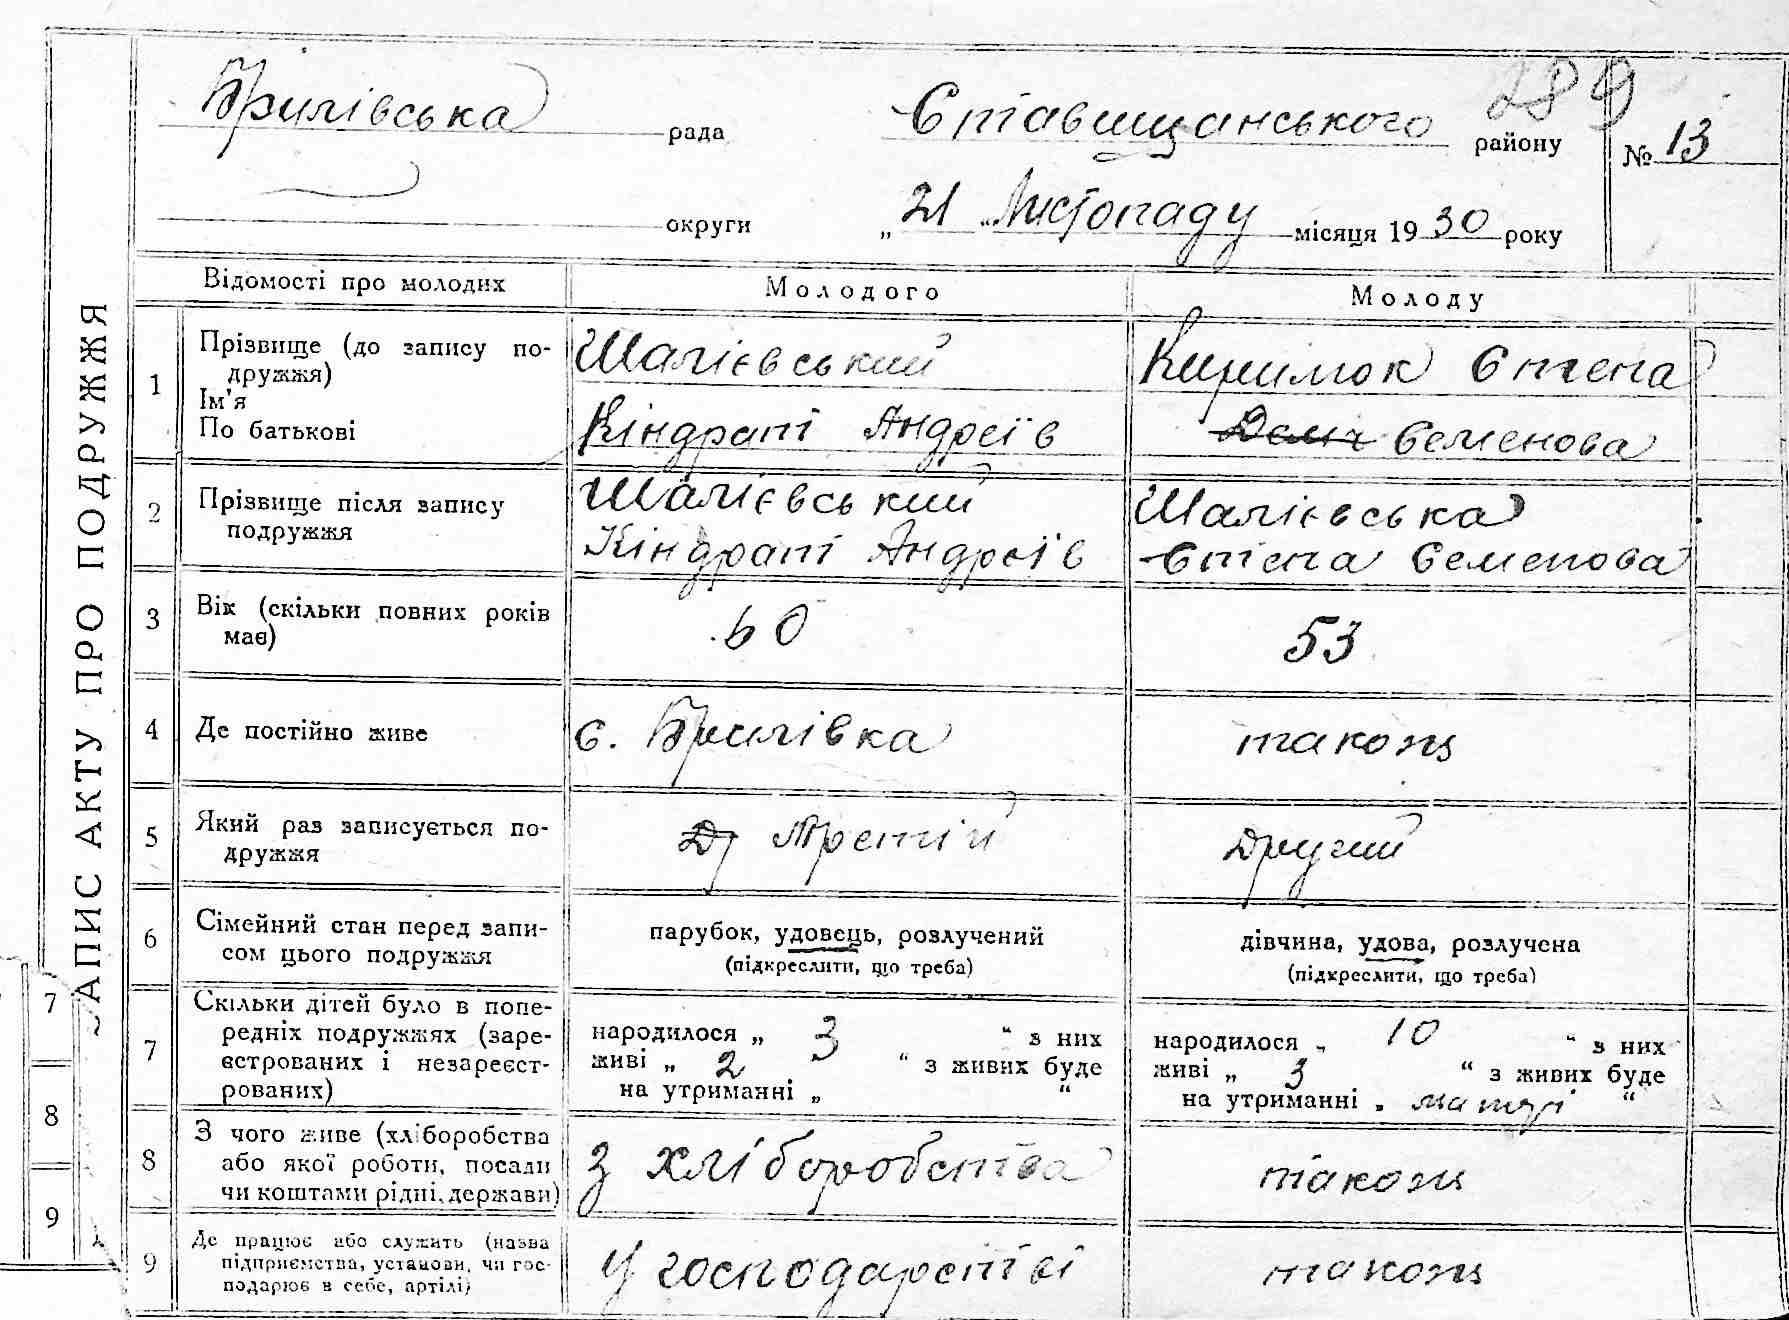 289
Брилівська рада Ставищанського району № 13
округи „21„ Листопаду місяця 1930 року
ЗАПИС АКТУ ПРО ПОДРУЖЖЯ
Відомості про молодих Молодого Молоду
1 Прізвище (до запису по-
дружжя)
Ім'я
По батькові
Шалієвський
Кіндрат Андреїв
Степа
Семенова
2 Прізвище після запису
подружжя
Шалієвський
Кіндрат Андреїв
Шалієвська
Степа Семенова
3 Вік (скільки повних років
має)
60
53
4 Де постійно живе
с. Брилівка
також
5 Який раз записується по-
дружжя
Др Третій
Другий
6 Сімейний стан перед запи-
сом цього подружжя
парубок, удовець, розлучений
(підкреслити, що треба)
дівчина, удова, розлучена
(підкреслити, що треба)
7 Скільки дітей було в попе-
редніх подружжях (заре-
єстрованих і незареєст-
рованих)
народилося „ 3 “ з них
живі „ 2 “ з живих буде
на утриманні „ “
народилося „ 10 “ з них
живі „ 3 “ з живих буде
на утриманні „ “
8 З чого живе (хліборобства
або якої роботи, посади
чи коштами рідні, держави)
З хліборобства
також
9 Де працює або служить (назва
підприємства, установи, чи гос-
подарює в себе, артілі)
У господарстві
також
7
8
9